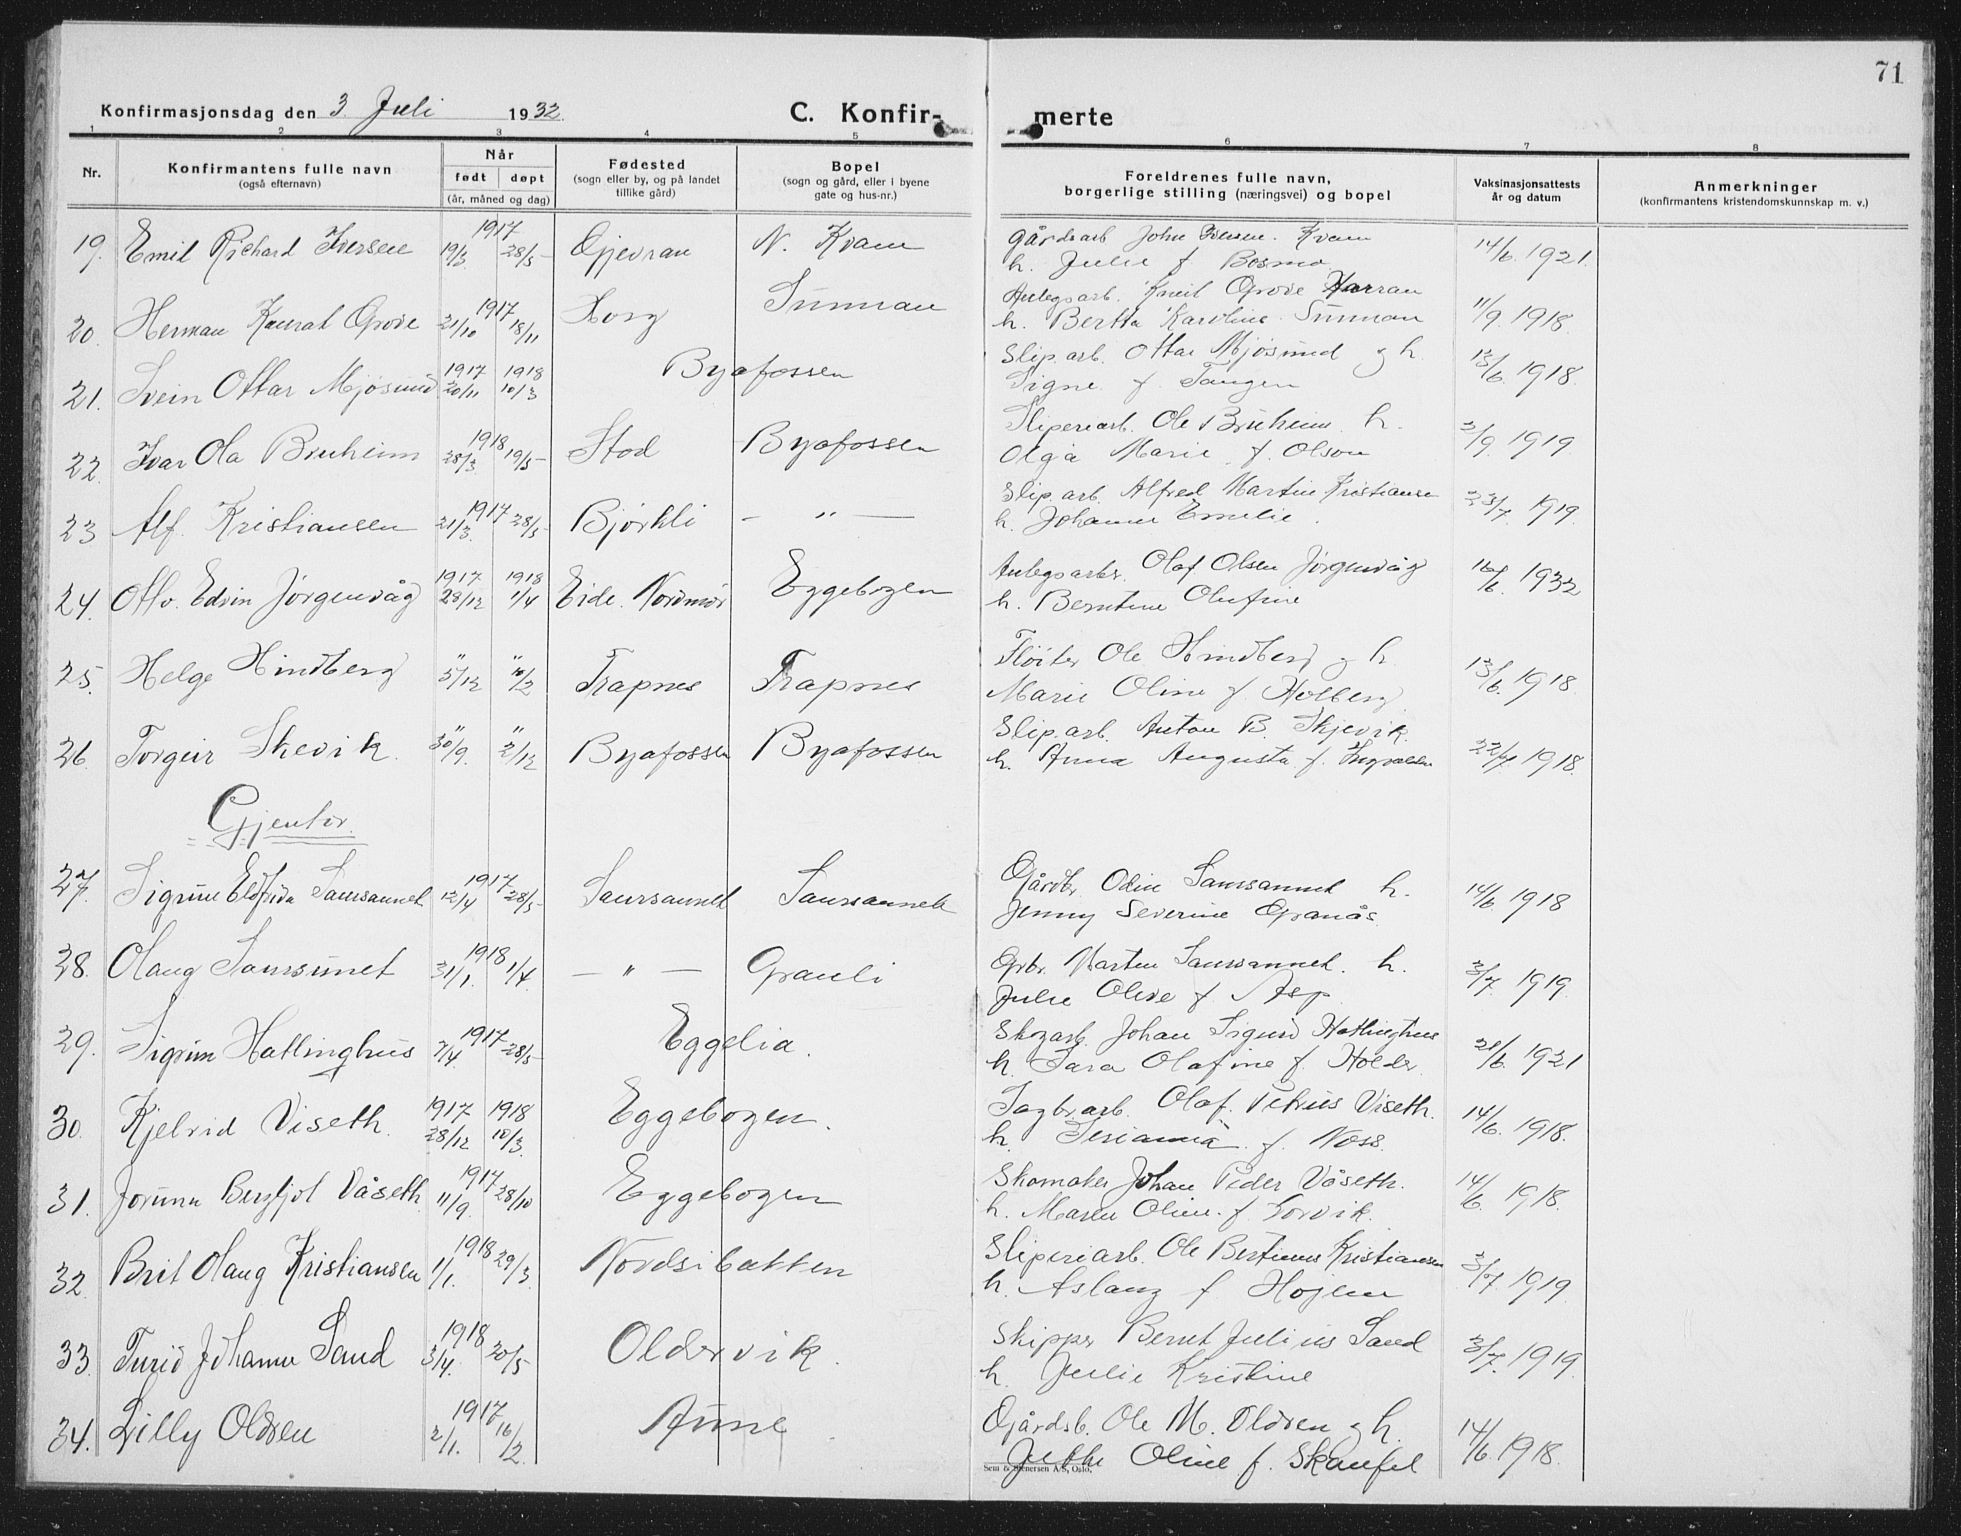 71
Konfirmasjonsdag den 3. Juli 1932
C. Konfirmerte
1 2 3 4 5 6 7 8
Nr.
Konfirmantens fulle navn
(også efternavn)
Når
født døpt
(år, måned og dag)
Fødested
(sogn eller by, og på landet
tillike gård)
Bopel
(sogn og gård, eller i byene
gate og hus-nr.)
Foreldrenes fulle navn,
borgerlige stilling (næringsvei) og bopel
Vaksinasjonsattests
år og datum
Anmerkninger
(konfirmantens kristendomskunnskap m. v.)
19. Emil Richard Iversen 1917 19/3 28/5 Gjevran N. Kvam Gårdsarb John Iversen. Kvam 14/6 1921.
h. Julie f. Bosmo
20. Herman Konrat Grove 1917 21/10 18/11 Horg Sunnan Anlegsarb. Grove Harran 11/9. 1918.
h. Bertha Karoline Sunnan
21. Svein Ottar Mjøsund 1917 20/11 1918 10/3 Byafossen Slip.arb. Ottar Mjøsund og h. 13/6 1918.
Signe f. Tangen
22. Ivar Ola Bruheim 1918 28/3 19/5 Stod Byafossen Sliperiarb. Ole Bruheim h. 3/9 1919.
Olga Marie f. Olson
23 Alf Kristiansen 1917 21/3. 28/5 Bjørkli — " — Slip.arb. Alfred Martin Kristiansen 23/7. 1919.
h. Johanne Emelie.
24. Otto Edvin Jørgenvåg 1917 28/12 1918 1/4 Eide. Nordmør Eggebogen Anlegsarb. Olaf Olsen Jørgenvåg 16/6. 1932
h. Berntine Olufine
25. Helge Hindberg " 5/12 " Trapnes Trapnes Fløiter Ole Hindberg og h. 13/6. 1918.
Marie Oline f. Holberg
26. Torgeir Skevik. " 30/9. " 2/12 Byafossen Byafossen Slip.arb. Anton B. Skjevik. 1918.
h. Anna Augusta f. Ingvalsen
Gjenter.
27. Sigrun Eldfrida Saursaunet 1917 12/4 28/5 Saursaunet Saursaunet Gårdbr. Odin Saursaunet h. 14/6 1918
Jenny Severine Granås.
28. Olaug Saursunet 1918 31/1. 1/4 — " — Grauli Grbr. Marten Saursaunet. h. 3/7. 1919.
Julie Olive f Asp
29. Sigrun Hallinghus 1917 7/4. 28/5 Eggelia. Skogarb. Johan Sigurd Hallinghus 21/6. 1921
h. Sara Olafine f. Holder
30. Kjelrid Viseth. 1917 28/12 1918 10/3. Eggebogen. Sagbr.arb. Olaf Petrus Viseth. 14/6. 1918.
h. f. Noss.
31. Jorunn Bergljot Våseth. 1917 11/9. 28/10 Eggebogen Skomaker Johan Peder Våseth. 14/6. 1918.
h. Maren Oline f. Korvik.
32. Brit Olaug Kristiansen 1918 1/1. 29/3. Nordsibakken Sliperiarb. Ole Bertinus Kristiansen 3/7. 1919.
h. Aslaug f Højem
33. Turid Johanne Sand 1918 3/4. 20/5 Oldervik. Skipper Bernt Julius Sand 3/7. 1919.
h. Julie Kristine
34. Lilly Oldren 1917 2/1. 16/2. Aune Gjårdsb. Ole M. Oldren og h. 14/6. 1918.
Oline f. Skaufel
Sem & Stenersen A/S, Oslo.